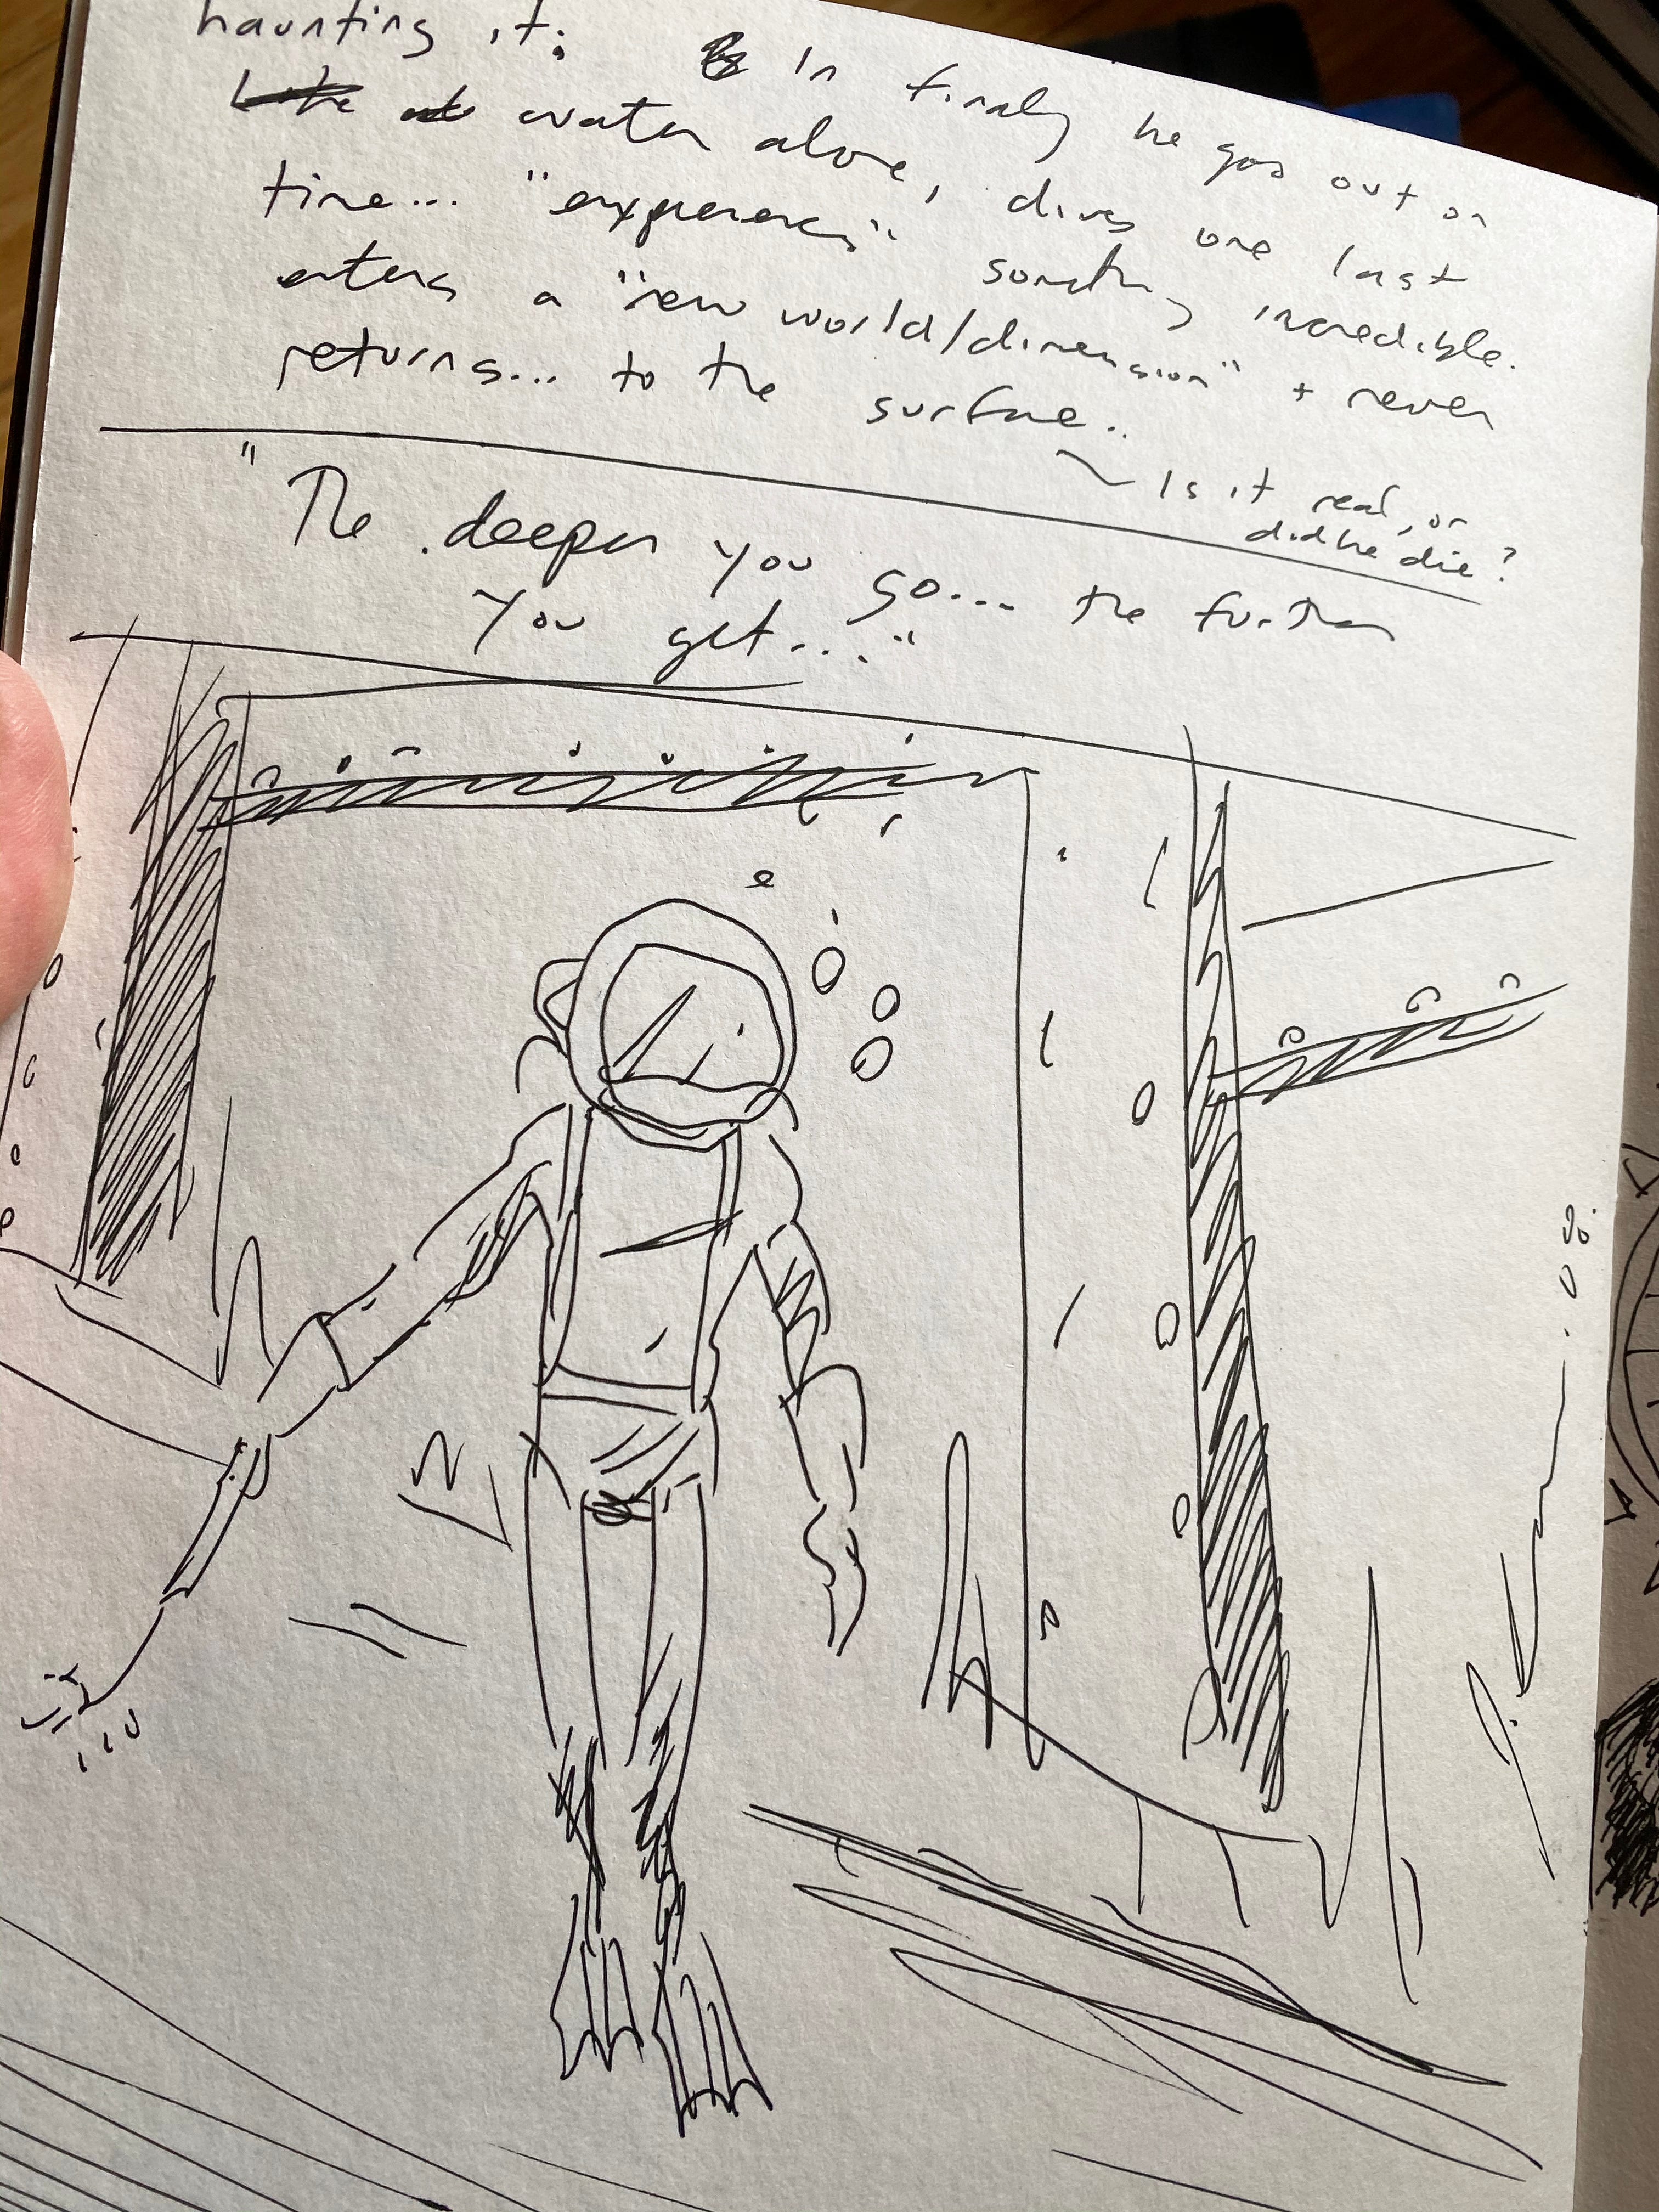 haunting it;
In finaly he goes out on
water alone, dives one last
time... "experiences" something incredible.
enters a "new world/dimension" + never
returns... to the surface..
~ Is it real, or
did he die?
"The deeper you go... the further
you get...."